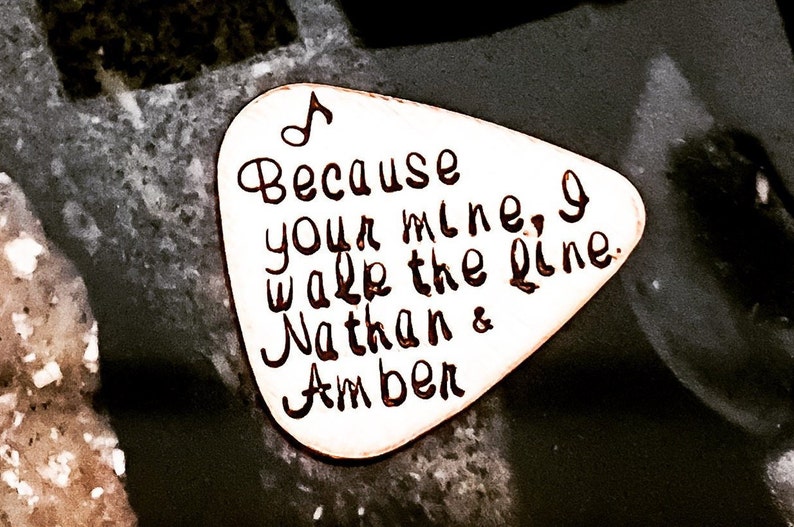 Because
your mine, I
walk the line.
Nathan &
Amber